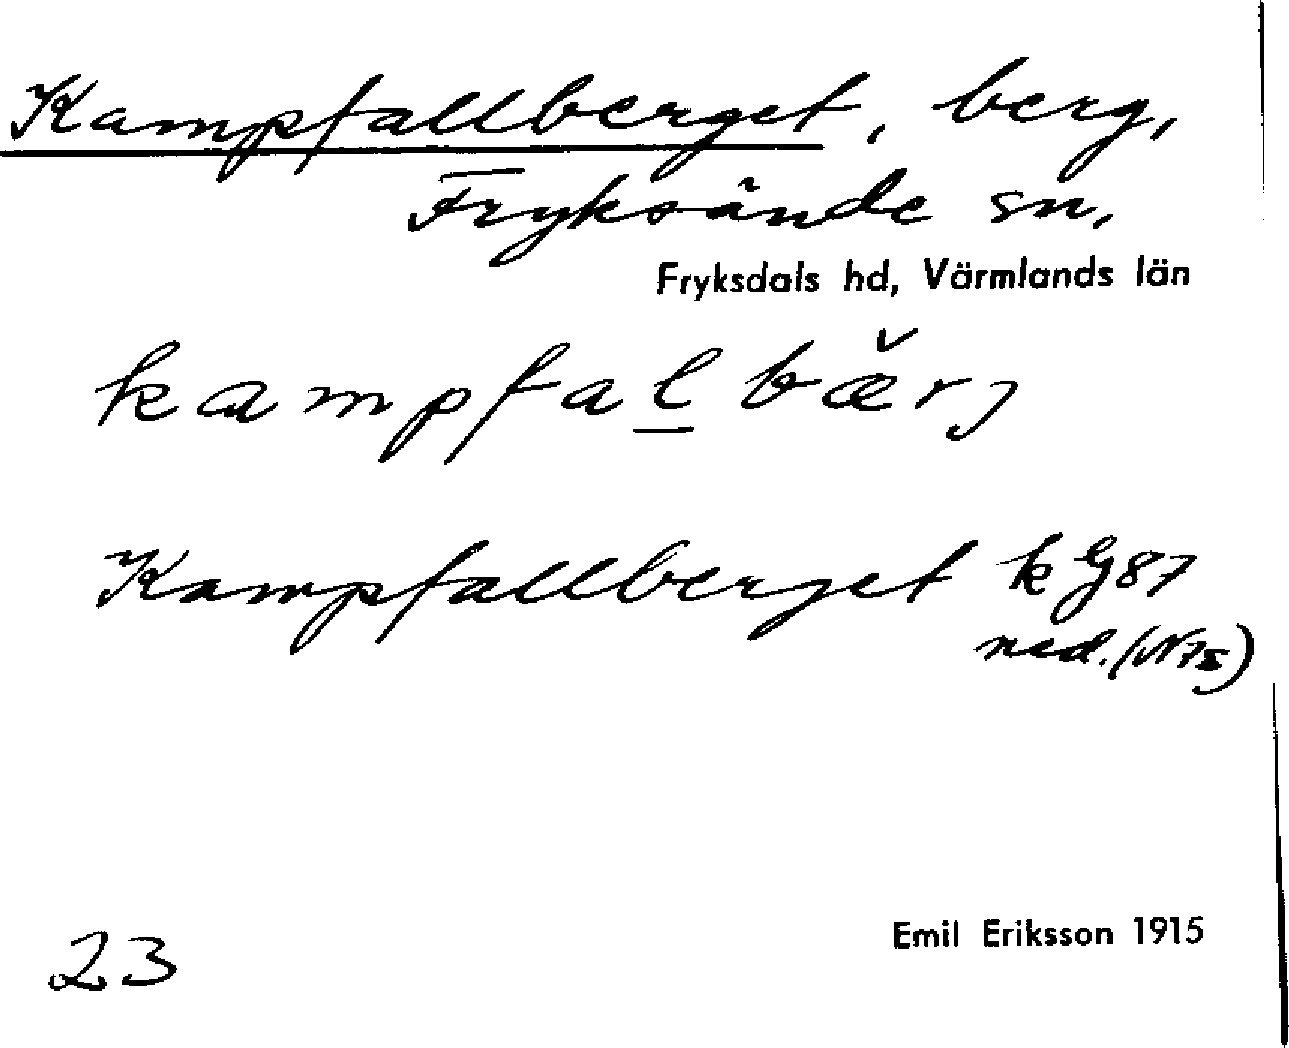 Kampfallberget, berg,
Fryksände sn.
Fryksdals hd, Värmlands län
kampfalbæ̆rj
Kampfallberget k G87
ned. (N75)
23
Emil Eriksson 1915